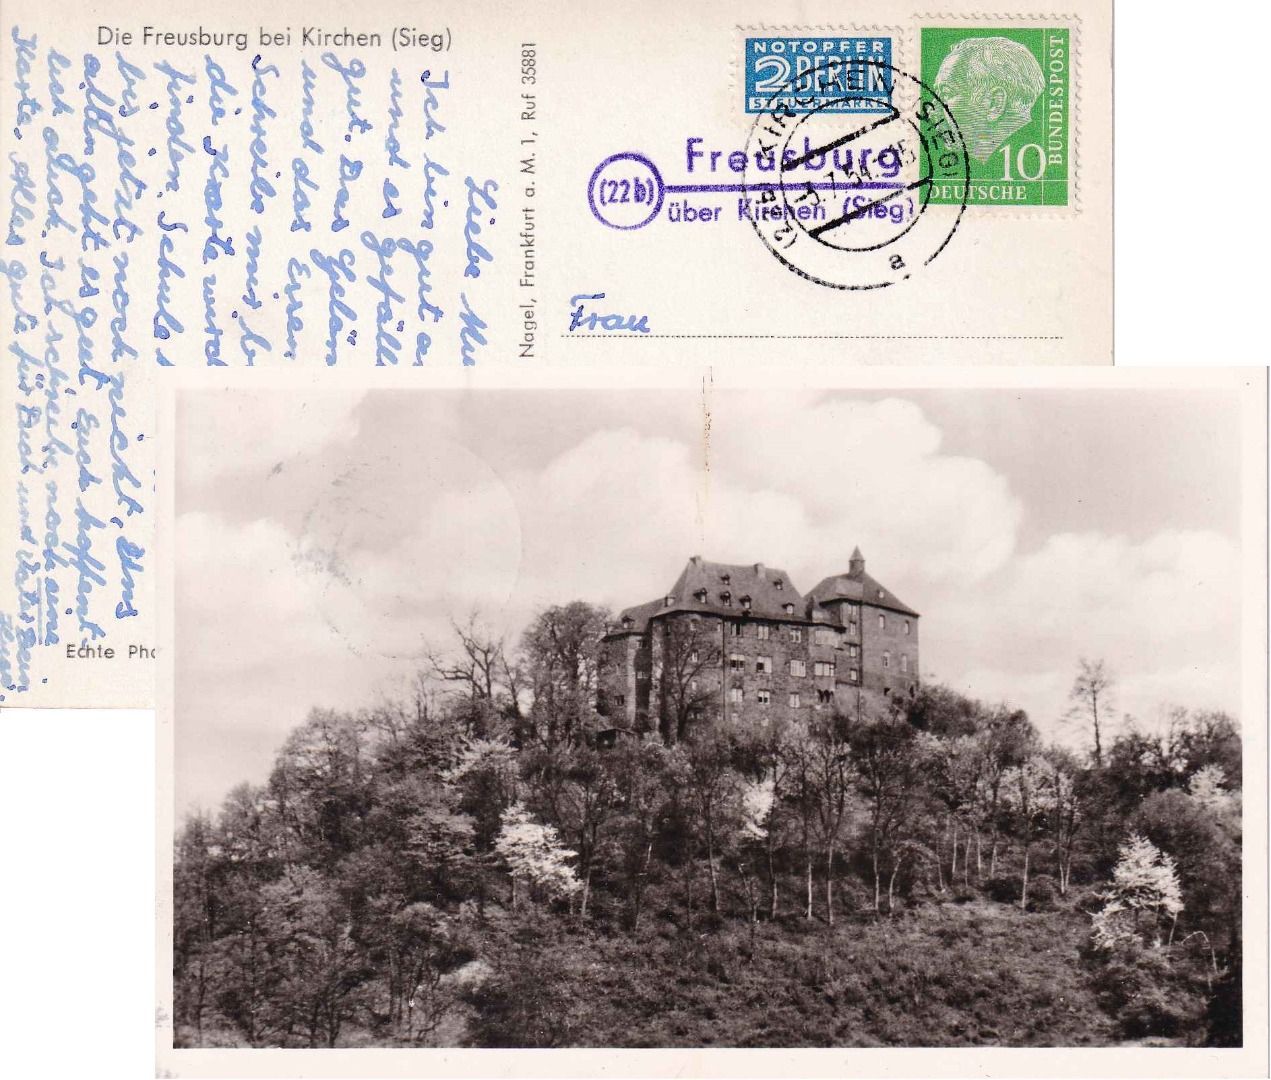 Die Freusburg bei Kirchen (Sieg)
Liebe Mu
Ich bin gut a
und es gefäll
gut. Das Gelän
und das Essen
Schreibe mir b
die Karte wird
finden. Schule
bis jetzt noch nicht. Uns
allen geht es gut. Euch hoffent-
lich auch. Ich schreibe noch eine
Karte. Alles gute für Euch und Vater
Echte Pho
Nagel, Frankfurt a. M. 1, Ruf 35881
NOTOPFER
2 BERLIN
STEUERMARKE
10
DEUTSCHE
BUNDESPOST
(22b) KIRCHEN (SIEG)
7.54.-15
a
(22b)
Freusburg
über Kirchen (Sieg)
Frau